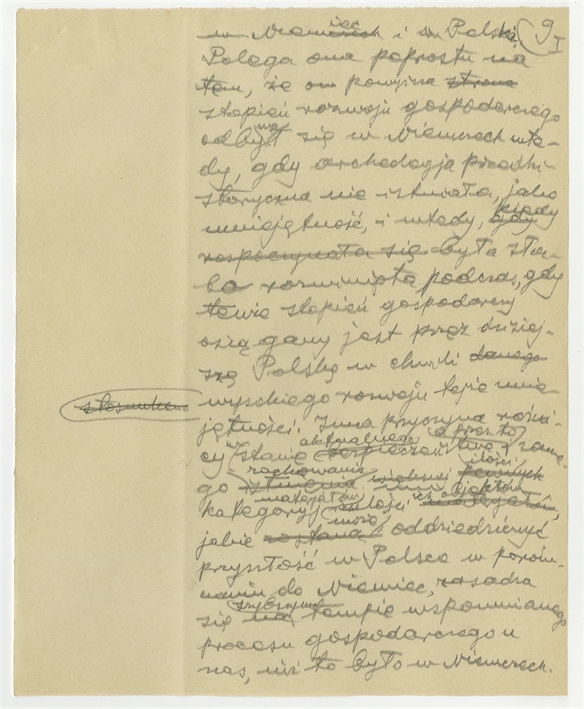 w Niemczech i w Polski. 9 I
Polega ona poprostu na
tem, że on powyższa strona
stopień rozwoju gospodarczego
odbył się w Niemczech wte-
dy, gdy archeologja przedhi-
storyczna nie istniała, jako
umiejętność, i wtedy, gdy kiedy
rozpoczynała się była sła-
bo rozwinięta podczas, gdy
tenże stopień gospodarczy
osiągany jest przez dzisiej-
szą Polskę w chwili danego
stosunkowo wysokiego rozwoju tejże umie-
jętności. Inna przyczyna różni-
cy w stanie aktualnego
go zachowania
kategoryj materjałów
jakie może oddziedziczyć
przyszłość w Polsce w porów-
naniu do Niemiec, zasadza
się na szybszym tempie wspomnianego
procesu gospodarczego u
nas, niż to było w Niemczech.